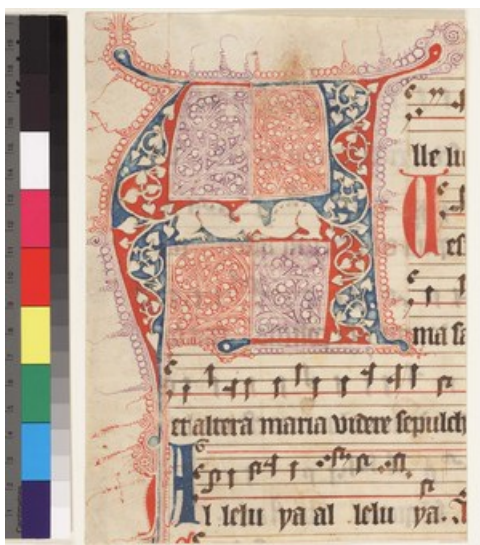 A lle lu
U es
ma sa
et altera maria videre sepulch
Al lelu ya al lelu ya.